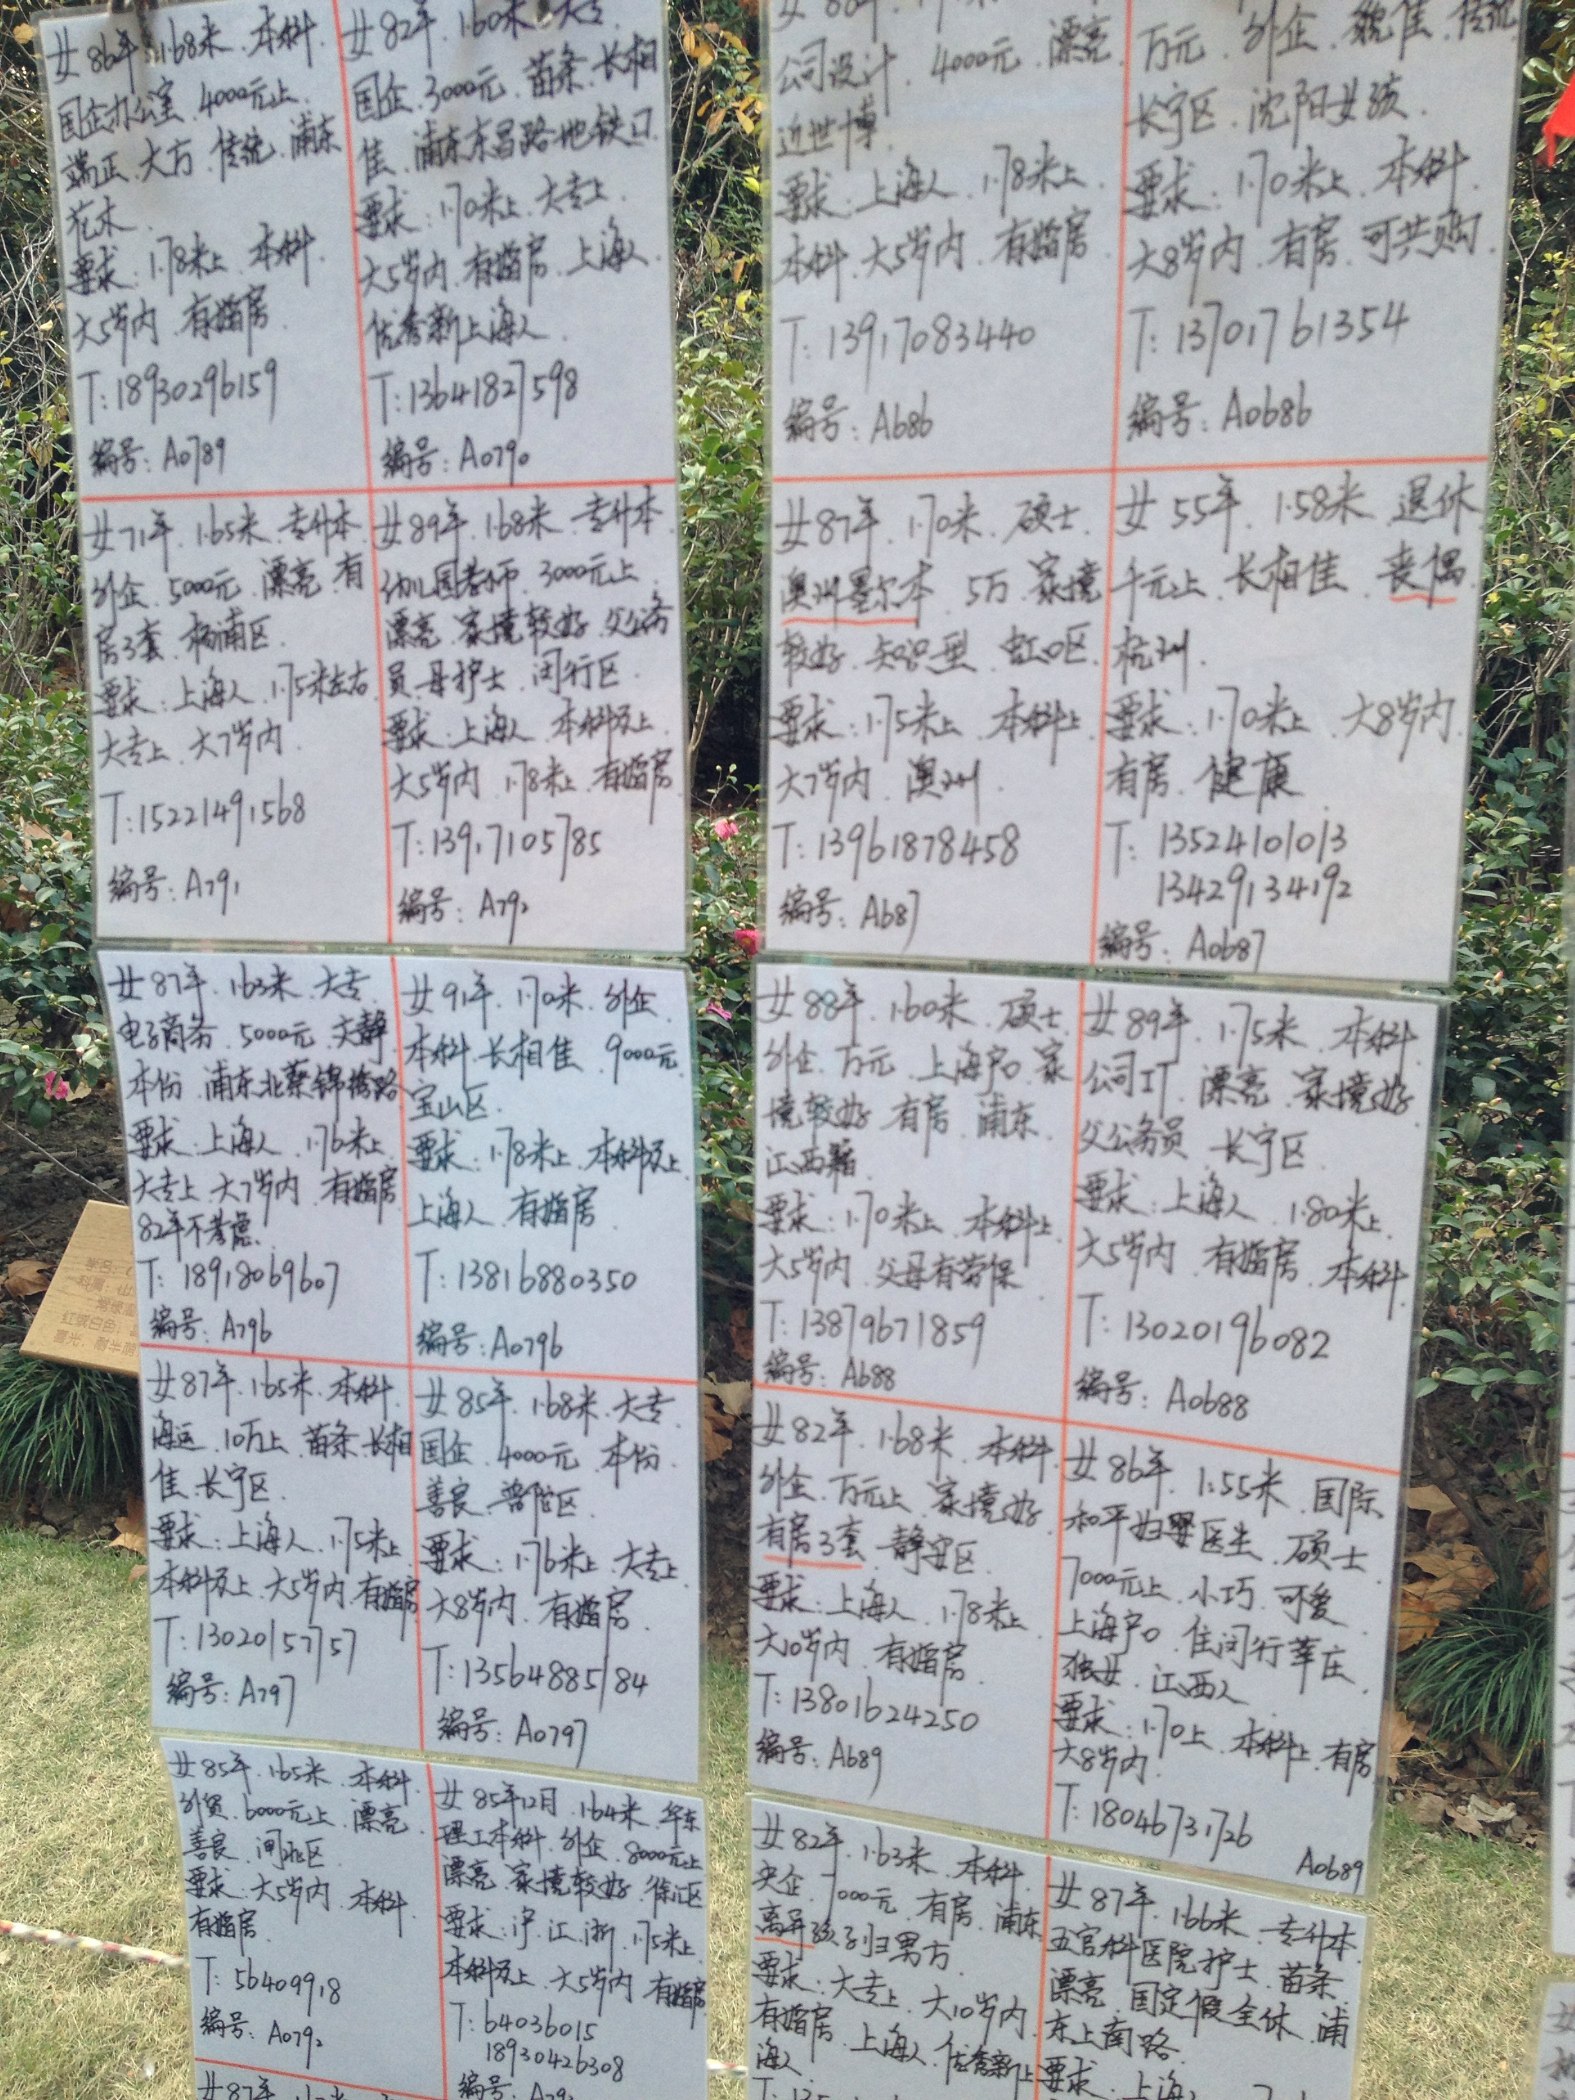 女86年.1.68米.本科.
国企办公室.4000元上.
端正.大方.传统.浦东
花木.
要求:1.78米上.本科.
大5岁内.有婚房.
T:18930296159
编号:A0789
女82年.1.60米.大专.
国企.3000元.苗条.长相
佳.浦东东昌路地铁口.
要求:1.70米上.大专上.
大5岁内.有婚房.上海人.
优秀新上海人.
T:13641827598
编号:A0790
女71年.1.65米.专升本.
外企.5000元.漂亮.有
房3套.杨浦区.
要求:上海人.1.75米左右.
大专上.大7岁内.
T:15221491568
编号:A791
女89年.1.68米.专升本.
幼儿园老师.3000元上.
漂亮.家境较好.父公务
员.母护士.闵行区.
要求:上海人.本科及上.
大5岁内.1.78米上.有婚房.
T:13917105785
编号:A792
女87年.1.63米.大专.
电子商务.5000元.文静.
本份.浦东北蔡锦绣路
要求:上海人.1.76米上.
大专上.大7岁内.有婚房.
82年不考虑.
T:18918069607
编号:A796
女91年.1.70米.外企.
本科.长相佳.9000元.
宝山区.
要求:1.78米上.本科及上.
上海人.有婚房.
T:13816880350
编号:A0796
女87年.1.65米.本科.
海运.10万上.苗条.长相
佳.长宁区.
要求:上海人.1.75米上.
本科及上.大5岁内.有婚房
T:13020157757
编号:A797
女85年.1.68米.大专.
国企.4000元.本份.
善良.普陀区.
要求:1.76米上.大专上.
大8岁内.有婚房.
T:13564885184
编号:A0797
女85年.1.65米.本科.
外贸.6000元上.漂亮.
善良.闸北区.
要求:大5岁内.本科.
有婚房.
T:56409918
编号:A0792
女85年12月.1.64米.华东
理工本科.外企.8000元上
漂亮.家境较好.徐汇区
要求:沪.江.浙.1.75米上.
本科及上.大5岁内.有婚房
T:64036015
18930426308
编号:A79
女87年
公司设计.4000元.漂亮.
近世博.
要求:上海人.1.78米上.
本科.大5岁内.有婚房
T:13917083440
编号:A686
万元.外企.貌佳.传统
长宁区.沈阳女孩.
要求:1.70米上.本科.
大8岁内.有房.可共购.
T:13701761354
编号:A0686
女87年.1.70米.硕士.
澳洲墨尔本.5万.家境
较好.知识型.虹口区.
要求:1.75米上.本科上.
大7岁内.澳洲.
T:13961878458
编号:A687
女55年.1.58米.退休
千元上.长相佳.丧偶.
杭州.
要求:1.70米上.大8岁内.
有房.健康.
T:13524101013
13429134192
编号:A0687
女88年.1.60米.硕士.
外企.万元.上海户口.家
境较好.有房.浦东.
江西籍.
要求:1.70米上.本科上.
大5岁内.父母有劳保.
T:13879671859
编号:A688
女89年.1.75米.本科.
公司IT.漂亮.家境好
父公务员.长宁区.
要求:上海人.1.80米上.
大5岁内.有婚房.本科.
T:13020196082
编号:A0688
女82年.1.68米.本科.
外企.万元上.家境好.
有房3套.静安区.
要求:上海人.1.78米上.
大10岁内.有婚房.
T:13801624250
编号:A689
女86年.1.55米.国际
和平妇婴医生.硕士.
7000元上.小巧.可爱.
上海户口.住闵行莘庄.
独女.江西人.
要求:1.70上.本科上.有房.
大8岁内.
T:18046731726
A0689
女82年.1.63米.本科.
央企.7000元.有房.浦东
离异孩子归男方.
要求:大专上.大10岁内.
有婚房.上海人.优秀新上
海人.
女87年.1.66米.专升本.
五官科医院护士.苗条.
漂亮.国定假全休.浦
东上南路.
要求:上海人.